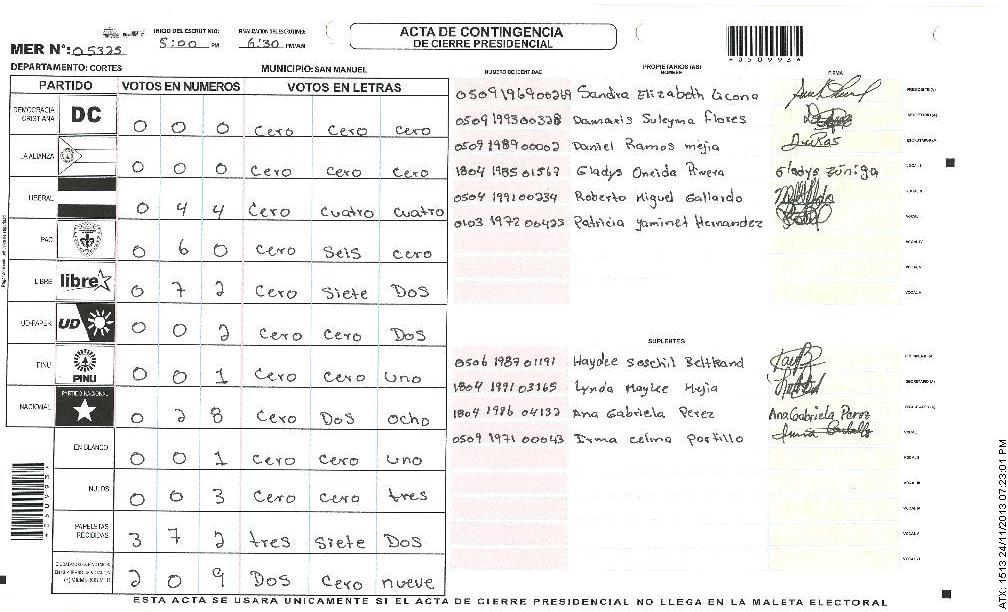 ACTA DE CONTINGENCIA
DE CIERRE PRESIDENCIAL
INICIO DEL ESCRUTINIO: 5:00 PM
FINALIZACION DEL ESCRUTINIO: 6:30 PM/AM
MER N°: 05325
* 050993 *
DEPARTAMENTO: CORTES MUNICIPIO: SAN MANUEL
PARTIDO VOTOS EN NUMEROS VOTOS EN LETRAS
DEMOCRACIA CRISTIANA DC 0 0 0 Cero Cero Cero
LA ALIANZA 0 0 0 Cero Cero Cero
LIBERAL 0 4 4 Cero Cuatro Cuatro
PAC 0 6 0 Cero Seis Cero
LIBRE libre 0 7 2 Cero Siete Dos
UD-FAPER UD 0 0 2 Cero Cero Dos
PINU PINU 0 0 1 Cero Cero Uno
NACIONAL PARTIDO NACIONAL 0 2 8 Cero Dos Ocho
EN BLANCO 0 0 1 Cero Cero Uno
NULOS 0 0 3 Cero Cero tres
PAPELETAS RECIBIDAS 3 7 2 tres Siete Dos
2 0 9 Dos Cero nueve
NUMERO DE IDENTIDAD PROPIETARIOS (AS) NOMBRE FIRMA
Sandra Elizabeth Licona PRESIDENTE(A)
0509 1993 00328 Damaris Suleyma flores SECRETARIO (A)
0509 1989 00002 Daniel Ramos mejia ESCRUTADOR/A
1804 1985 01567 Gladys Oneida Rivera Gladys Zúniga VOCAL I
0504 1991 00234 Roberto Miguel Gallardo VOCAL II
0103 1972 00423 Patricia Yaminet Hernandez VOCAL III
VOCAL IV
VOCAL V
VOCAL VI
SUPLENTES
0506 1987 01191 Haydee Soschil Beltrand PRESIDENTE (A)
1804 1991 03165 Lynda Maylee Mejia SECRETARIO (A)
1804 1986 04132 Ana Gabriela Perez Ana Gabriela Perez ESCRUTADOR (A)
0509 1971 00043 Irma celina Portillo VOCAL I
VOCAL II
VOCAL III
VOCAL IV
VOCAL V
VOCAL VI
ESTA ACTA SE USARA UNICAMENTE SI EL ACTA DE CIERRE PRESIDENCIAL NO LLEGA EN LA MALETA ELECTORAL
1513 24/11/2013 07:23:01 PM